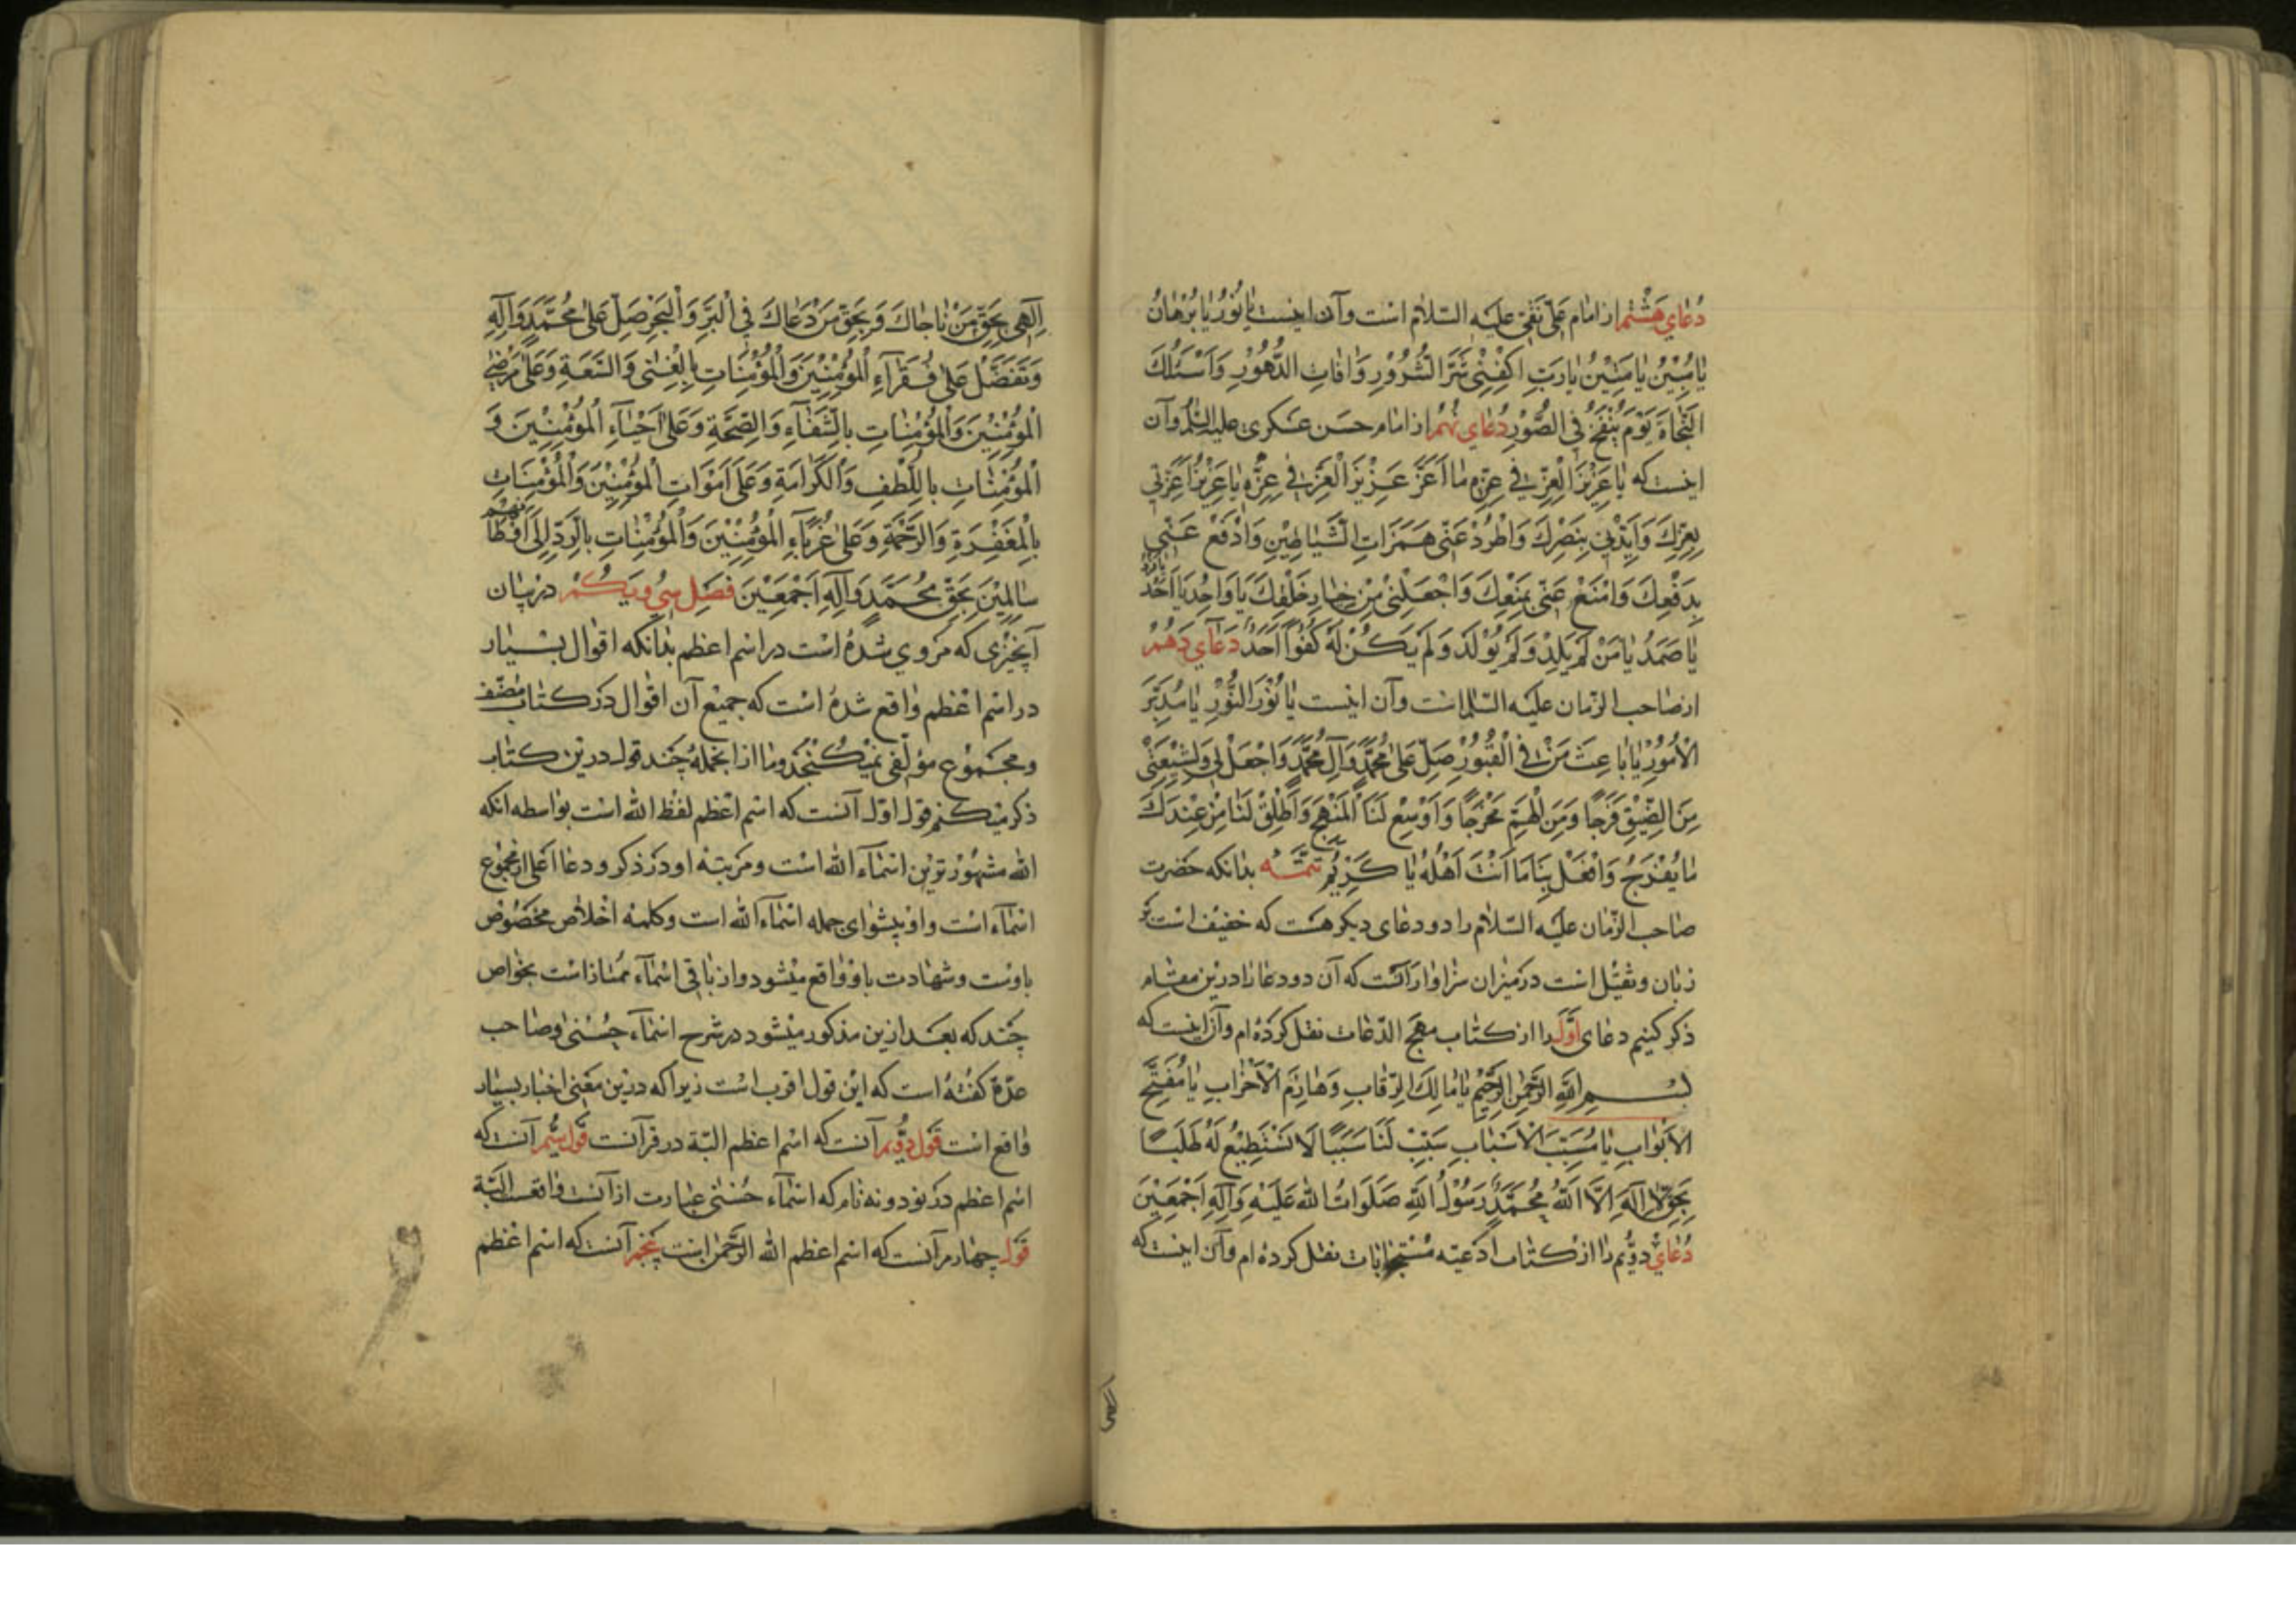 دُعٰاي هَشْتُم از امٰام عَلیّ نَقیّ عَلَیْهِ السّلٰام اسْت وآن اینست یٰا نُوْرُ یٰا بُرْهٰانُ
یٰا مُبِیْنُ یٰا مَتِیْنُ یٰا رَبِّ اكْفِنِیْ شَرَّ الشُّرُوْرِ وَاٰفٰاتِ الدُّهُوْرِ وَاَسْئَلُكَ
النَّجٰاةَ یَوْمَ یُنْفَخُ فِي الصُّوْرِ دُعٰاي نُهُم از امٰام حسَن عَسكری علیه السّلام وآن
اینست كه یٰا عَزِیْزَ الْعِزِّ فِي عِزِّهِ مٰا اَعَزَّ عَزِیْزَ الْعِزِّ فِي عِزِّهِ یٰا عَزِیْزُ اَعِزَّنِي
بِعِزِّكَ وَاَیِّدْنِي بِنَصْرِكَ وَاطْرُدْ عَنّي هَمَزَاتِ الشَّیٰاطِیْنِ وَادْفَعْ عَنّي
بِدَفْعِكَ وَامْنَعْ عَنّي بِمَنْعِكَ وَاجْعَلْنِيْ مِنْ خِیٰارِ خَلْقِكَ یٰا وٰاحِدُ یٰا اَحَدُ
یٰا صَمَدُ یٰا مَنْ لَمْ یَلِدْ وَلَمْ یُوْلَدْ وَلَمْ یَكُنْ لَهُ كُفُوًا اَحَدٌ دُعٰاي دَهُم
از صٰاحب الزّمان علیه السّلام است وآن اینست یٰا نُوْرَ النُّوْرِ یٰا مُدَبِّرَ
الْاُمُوْرِ یٰا بٰاعِثَ مَنْ فِي الْقُبُوْرِ صَلِّ عَلٰی مُحَمَّدٍ وَآلِ مُحَمَّدٍ وَاجْعَلْ لِي وَلِشِیْعَتِيْ
مِنَ الضِّیْقِ فَرَجًا وَمِنَ الْهَمِّ مَخْرَجًا وَاَوْسِعْ لَنَا الْمَنْهَجَ وَاَطْلِقْ لَنٰا مِنْ عِنْدِكَ
مٰا یُفْرِجُ وَافْعَلْ بِنَا مَا اَنْتَ اَهْلُهُ یٰا كَرِیْمُ تتمّه بدٰانكه حَضرت
صٰاحب الزّمٰان علیه السّلٰام را دو دعٰای دیكر هست كه خفیف است بَر
زبٰان وثقیْل است در میْزان سزٰاوٰار آنست كه آن دو دعٰا رٰا درین مقٰام
ذكر كنیم دعٰای اَوَّل را از كتٰاب مهج الدّعٰوات نقل كرده ام وآن اینست كه
بِسْمِ اللهِ الرَّحْمٰنِ الرَّحِیْمِ یٰا مٰالِكَ الرِّقٰابِ وَهٰازِمَ الْاَحْزٰابِ یٰا مُفَتِّحَ
الْاَبْوٰابِ یٰا مُسَبِّبَ الْاَسْبٰابِ سَبِّبْ لَنَا سَبَبًا لَا نَسْتَطِیْعُ لَهُ طَلَبًا
بِحَقِّ لٰا اِلٰهَ اِلَّا اللهُ مُحَمَّدٌ رَسُوْلُ اللهِ صَلَوَاتُ اللهِ عَلَیْهِ وَآلِهِ اَجْمَعِیْنَ
دُعٰايْ دوُّیم رٰا از كتٰاب ادْعیَه مُسْتجابات نقل كرده ام وآن اینست كه
اِلٰهِي بِحَقِّ مَنْ نٰاجٰاكَ وَبِحَقِّ مَنْ دَعٰاكَ فِي الْبَرِّ وَالْبَحْرِ صَلِّ عَلٰی مُحَمَّدٍ وَآلِهِ
وَتَفَضَّلْ عَلٰی فُقَرٰآءِ الْمُؤْمِنِیْنَ وَالْمُؤْمِنٰاتِ بِالْغِنٰی وَالسَّعَةِ وَعَلٰی مَرْضَی
الْمُؤْمِنِیْنَ وَالْمُؤْمِنٰاتِ بِالشِّفٰآءِ وَالصِّحَّةِ وَعَلٰی اَحْیٰآءِ الْمُؤْمِنِیْنَ وَ
الْمُؤْمِنٰاتِ بِاللُّطْفِ وَالْكَرَامَةِ وَعَلٰی اَمْوَاتِ الْمُؤْمِنِیْنَ وَالْمُؤْمِنٰاتِ
بِالْمَغْفِرَةِ وَالرَّحْمَةِ وَعَلٰی غُرَبٰآءِ الْمُؤْمِنِیْنَ وَالْمُؤْمِنٰاتِ بِالرَّدِّ اِلَی اَوْطٰانِهِمْ
سٰالِمِیْنَ بِحَقِّ مُحَمَّدٍ وَآلِهِ اَجْمَعِیْنَ فصَل سٖي ویَكُم در بیٰان
آنچیْزی كه مَروي شدهُ است در اسْم اعظم بدٰانكه اقوٰال بسْیٰار
در اسْم اعْظم وٰاقع شدهُ است كه جمیْع آن اقوٰال در كتٰاب مُصنّف
ومجْمُوع مؤلّفی نمیْكُنْجَد ومٰا از انجمله چَند قول دریْن كتٰاب
ذكر میْكنیم قول اوّل آنست كه اسْم اعْظم لفْظ الله است بوٰاسطه آنكه
الله مشهُوْرتریْن اسْمٰآء الله است ومَرتبَهٔ او در ذكر ودعٰا اعلی از مجْموُع
اسْمٰآء است واو پیشوٰای جمله اسْمٰآء الله است وكلمهٔ اخْلٰاص مخصُوْص
باوست وشهٰادت باو وٰاقع میْشود واز بٰاقی اسْمٰآء مُمتٰاز است بخوٰاص
چَند كه بعَد ازین مذكور میْشود در شرح اسْمٰآء حُسْنی وصٰاحب
عدّة كفتهُ است كه ایْن قول اقرب است زیرا كه دریْن معْنی اخبٰار بسیٰار
وٰاقع است قَول دوُّیم آنست كه اسْم اعظم البتّة در قرآنست قَول سُیّم آنست كه
اسْم اعظم در نود ونه نٰام كه اسْمٰآء حُسْنی عبٰارت از آنست وٰاقعست البَتّة
قَول چهٰارم آنست كه اسْم اعظم الله الرّحْمٰن است پَنجم آنست كه اسْم اعْظم